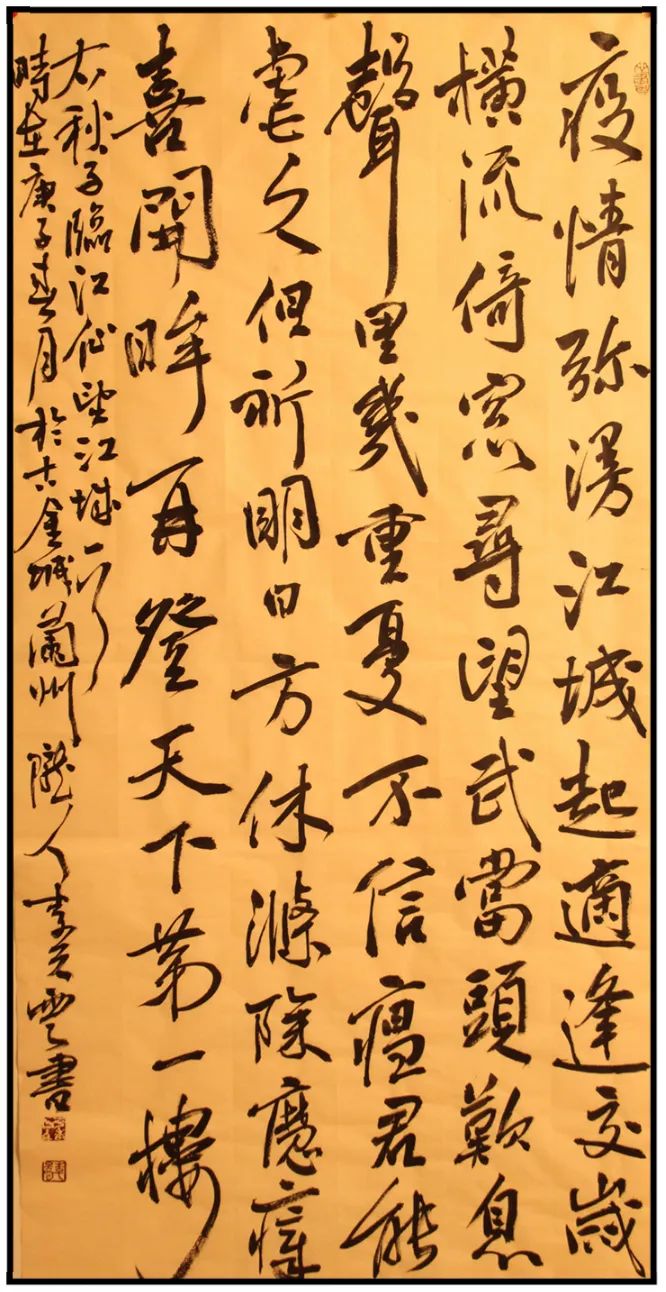 疫情弥漫江城起適逢交歲
橫流倚窓尋望武當頭歎息
聲里幾重憂不信瘟君能
虐久但祈明日方休滌除瘴
喜開眸再登天下第一樓
秋子臨江仙望江城一首
時在庚子春月於古金城蘭州隴人李雲書